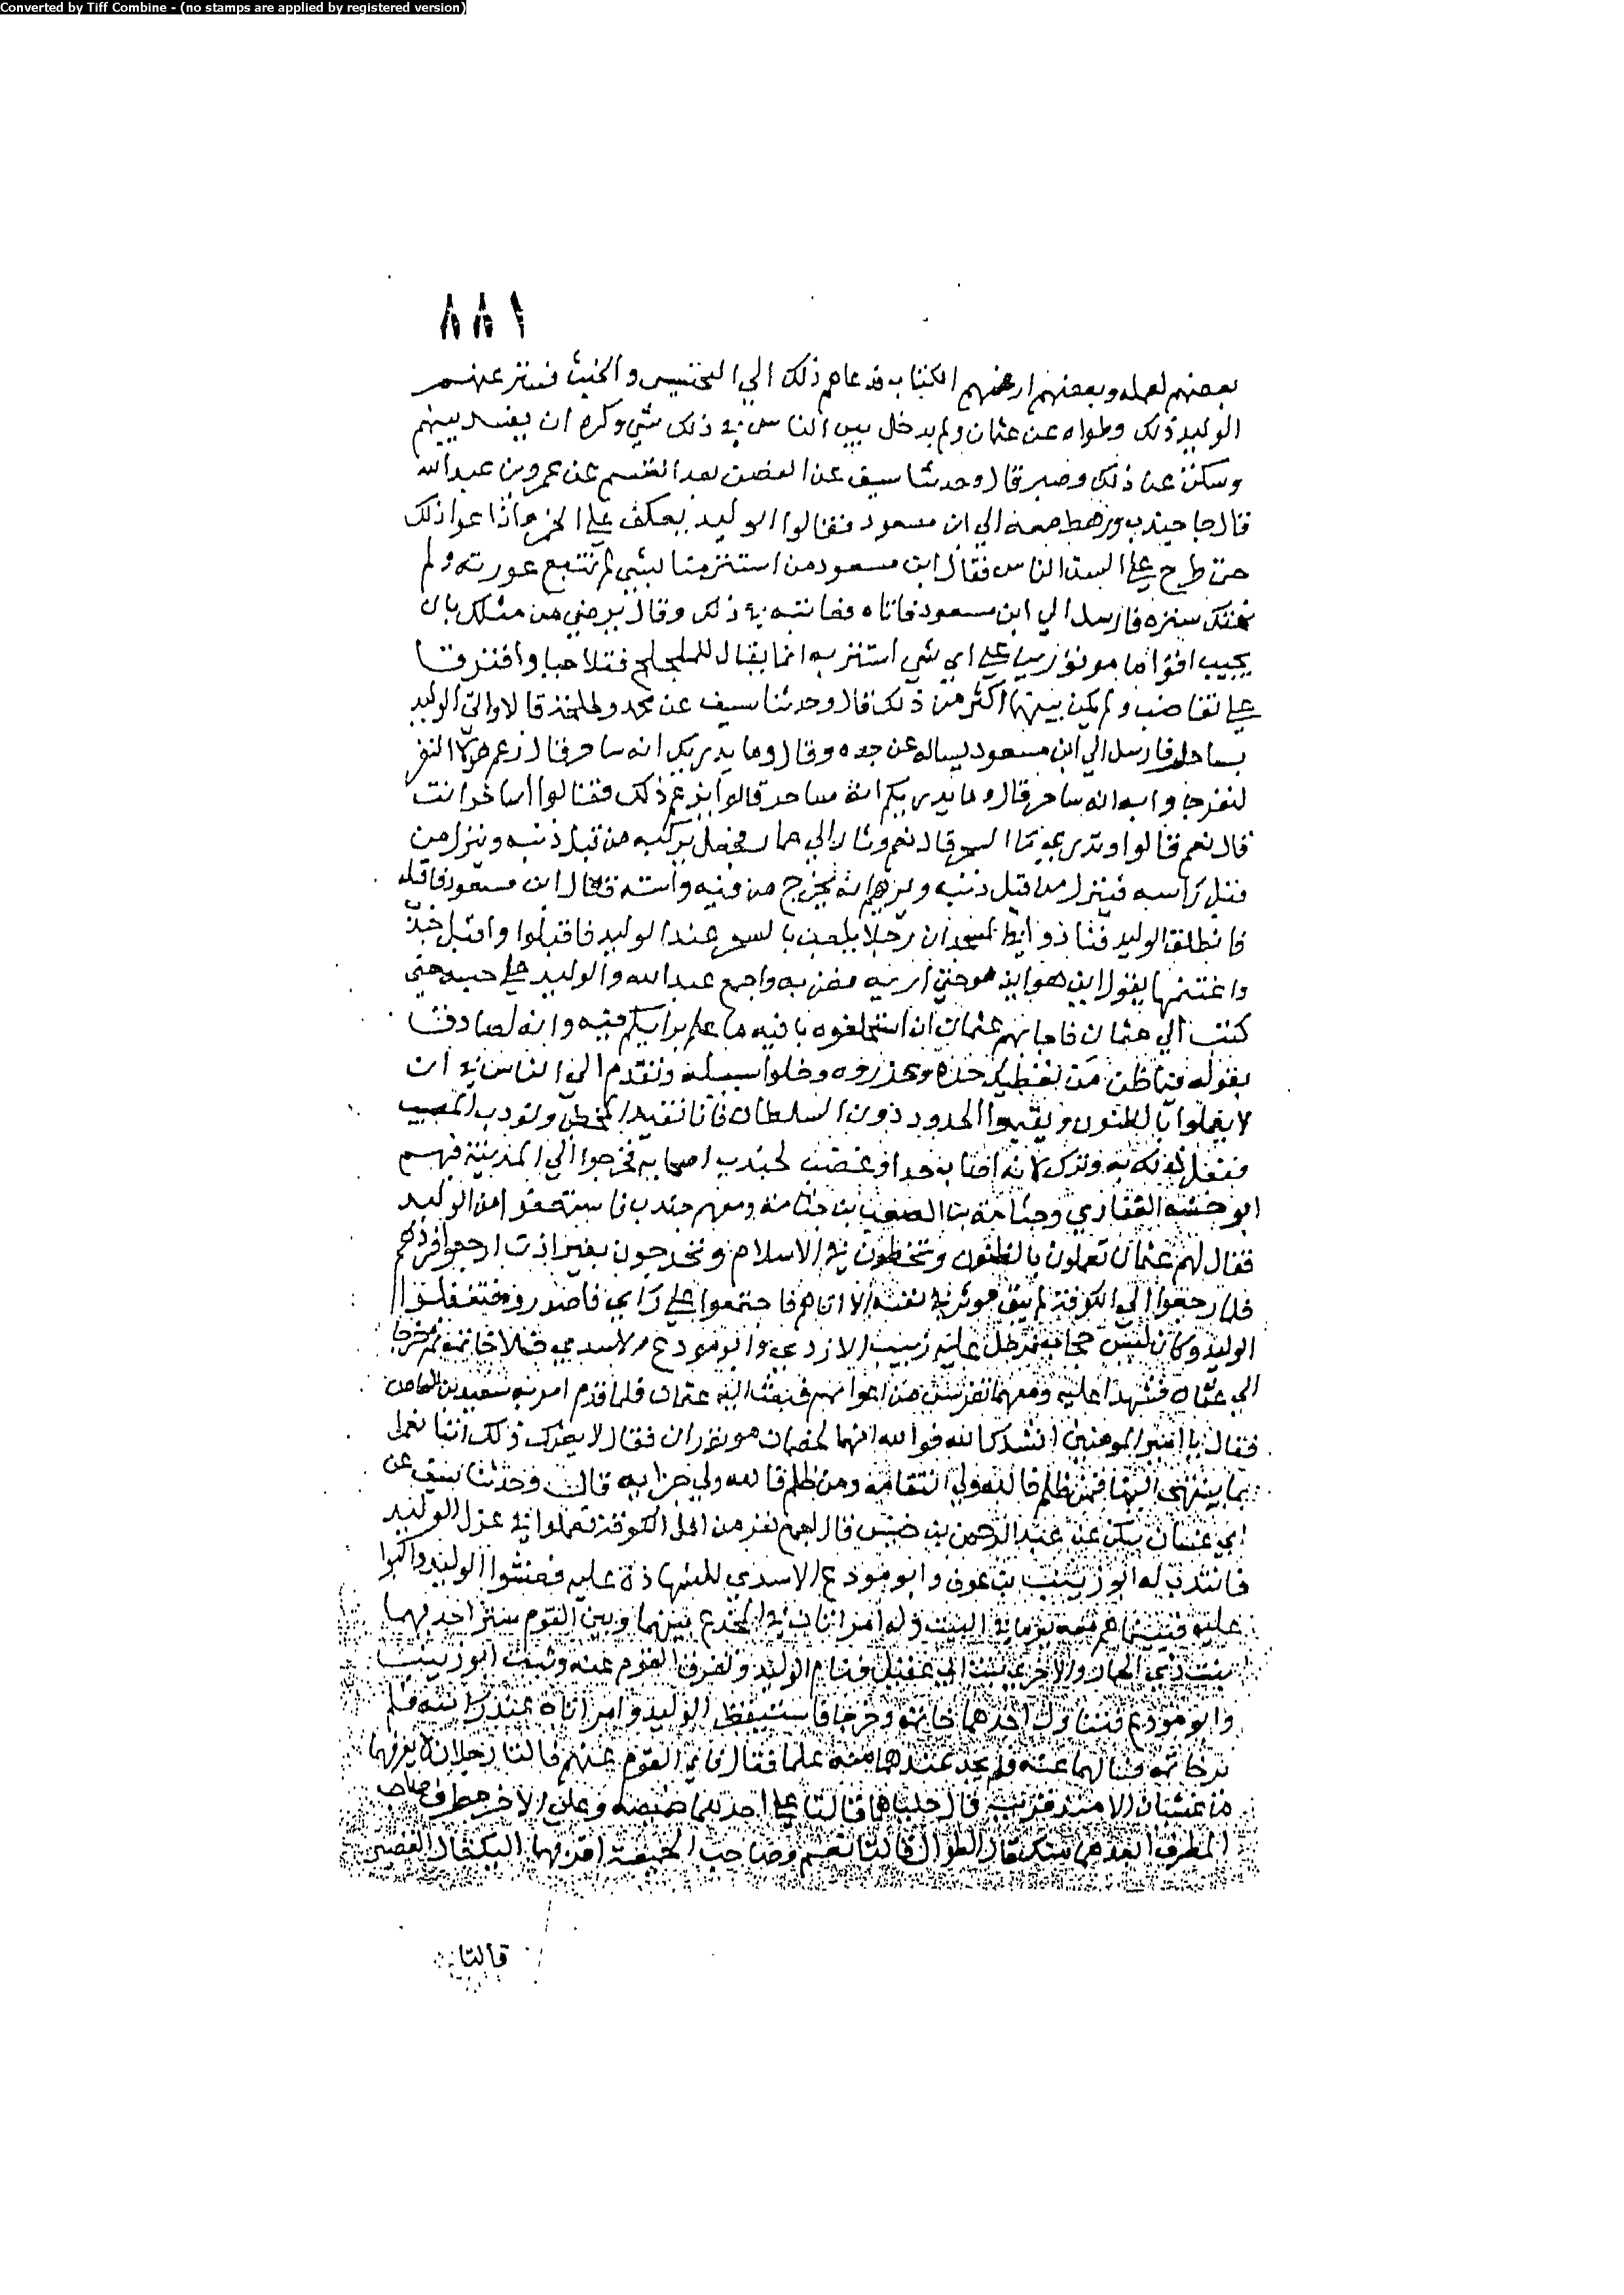 Converted by Tiff Combine - (no stamps are applied by registered version)
١٨٨
بعضهم لعمله وبعضهم ارغمهم الكتاب فدعاهم ذلك الي التحسس والبحث فستر عنهم
الوليد ذلك وطواه عن عثمان ولم يدخل بين الناس في ذلك شي وكره ان يفسد بينهم
وسكت عن ذلك وصبر قال وحدثنا سيف عن الغصن بن القسم عن عمرو بن عبدالله
قال جا جندب ورهط معه الي ابن مسعود فقالوا الوليد يعكف علي الخمر واذاعوا ذلك
حتي طرح علي السن الناس فقال ابن مسعود من استتر عنا بشي لم نتتبع عورته ولم
نهتك ستره فارسل الي ابن مسعود فاتاه فعاتبه في ذلك وقال يرضي من مثلك بان
يجيب اقواما موتورين علي اي شي استتر به انما يقال للملجلج فتلاحيا وافترقا
علي تغاضب ولم يكن بينهما اكثر من ذلك قال وحدثنا سيف عن محمد وطلحة قالا واتي الوليد
بساحر فارسل الي ابن مسعود يساله عن حده وقال وما يدريك انه ساحر قال زعم هولا النفر
لنفر جا وا به انه ساحر قال وما يدريكم انه ساحر قالوا يزعم ذلك فقالوا اساحر انت
قال نعم قالوا وتدري ما السحر قال نعم وثار الي حمار فجعل يركبه من قبل ذنبه وينزل من
قبل راسه فينزل من قبل ذنبه ويريهم انه يخرج من فيه واسته فقال ابن مسعود فاقتله
فانطلق الوليد فنادوا في المسجد ان رجلا يلعب بالسحر عند الوليد فاقبلوا واقبل جندب
واغتنمها يقول اين هو اين هو حتي اريه فضربه واجمع عبدالله والوليد علي حبسه حتي
كتب الي عثمان فاجابهم عثمان ان استحلفوه بالله ما علم برايكم فيه وانه لصادق
بقوله فيما ظن من تعطيل حده وعزروه وخلوا سبيله وتقدم الي الناس في ان
لا يعملوا بالظنون ويقيموا الحدود دون السلطان فانا نقيد المخطي ونودب المصيب
ففعل ذلك به وترك لانه اصاب حدا وغضب لجندب اصحابه فخرجوا الي المدينة فيهم
ابو خشه الغفاري وجثامة بن الصعب بن جثامة ومعهم جندب فاستعفوا من الوليد
فقال لهم عثمان تعملون بالظنون وتخطون في الاسلام وتخرجون بغير اذن ارجعوا فردهم
فلما رجعوا الي الكوفة لم يبق موتور في نفسه الا اتاهم فاجتمعوا علي راي فاصدروه فتغفلوا
الوليد وكان ليس عليه حجاب فدخل عليه ابو زينب الازدي وابو مورع الاسدي فسلا خاتمه ثم خرجا
الي عثمان فشهدا عليه ومعهما نفر ممن من اعوانهم فبعث اليه عثمان فلما قدم امر به سعيد بن العاص
فقال يا امير المومنين انشدك الله فوالله انهما لخصمان موتوران فقال لا يضرك ذلك انما نعمل
بما ينتهي الينا فمن ظلم فالله ولي انتقامه ومن ظلم فالله ولي جزايه قال وحدثنا سيف عن
ابي غسان سكن عن عبد الرحمن بن حبيش قال اجتمع نفر من اهل الكوفة فعملوا في عزل الوليد
فانتدب له ابو زينب بن عوف وابو مورع الاسدي للشهادة عليه فغشوا الوليد واكبوا
عليه فبينما هم معه يوما في البيت وله امراتان في المخدع بينهما وبين القوم ستر احديهما
بنت ذي الخمار والاخري بنت ابي عقيل فنام الوليد وتفرق القوم عنه وثبت ابو زينب
وابو مورع فتناول احدهما خاتمه وخرجا فاستيقظ الوليد وامراتاه عند راسه فلم
ير خاتمه فسالهما عنه فلم يجد عندهما منه علما فقال فاي القوم تخلف عنهم قالتا رجلان لا نعرفهما
ما غشياك الا منذ قريب قال حلياهما قالتا علي احديهما خميصة وعلي الاخر مطرف صاحب
المطرف ابعدهما منك فقال الطوال قالتا نعم وصاحب الخميصة اقربهما اليك فقال القصير
قالتا